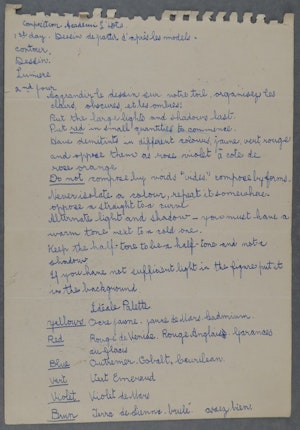 1st day. Dessin d'après les models -
contour,
Dessin.
Lumiere
2nd jour
Aggrandir le dessin sur votre toile, organisez les
clairs, obscures, et les ombres:
Put the large lights and shadows last.
Put red in small quantities to commence.
Have demitints in different colours, jaune, vert, rouge
and oppose them as rose violet à côte de
rose orange.
Do not compose by words "vides" compose by forms.
Never isolate a colour, repeat it somewhere
oppose a straight to a curve.
Alternate light and shadow - you must have a
warm tone next to a cold one.
Keep the half-tone to be a half-tone and not a
shadow.
If you have not sufficient light in the figure put it
in the background.
Ideale Palette
yellows Ocre jaune. jaune de Mars. Cadmium.
Red Rouge de Venise. Rouge Anglaise. Garances
Blue Outremer. Cobalt, Ceurilean.
Vert Vert Emeraud
Violet Violet de Mars
Brun Terra de sienna - brulé assez bien